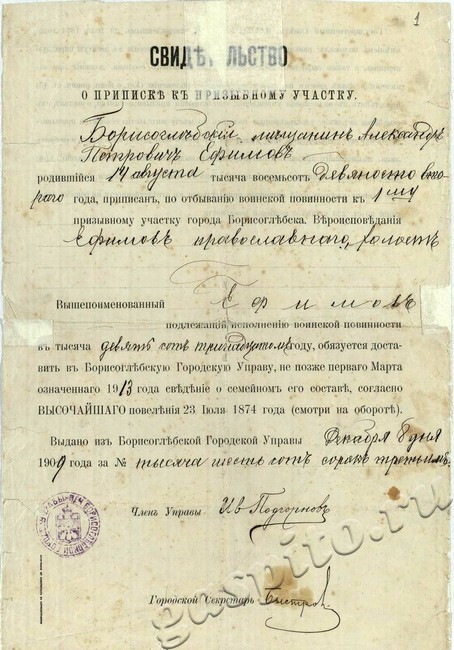 1
СВИДѢТЕЛЬСТВО
О ПРИПИСКѢ КЪ ПРИЗЫВНОМУ УЧАСТКУ.
Борисоглѣбскій мѣщанинъ Александръ
Петровичъ Ефимовъ
родившійся 14 августа тысяча восемьсотъ девяносто вто-
раго года, приписанъ, по отбыванію воинской повинности къ 1му
призывному участку города Борисоглѣбска. Вѣроисповѣданія
Ефимовъ православнаго, холостъ
Вышепоименованный Ефимовъ
подлежащій исполненію воинской повинности
въ тысяча девять сотъ тринадцатомъ году, обязуется доста-
вить въ Борисоглѣбскую Городскую Управу, не позже перваго Марта
означеннаго 1913 года свѣдѣніе о семейномъ его составѣ, согласно
ВЫСОЧАЙШАГО повелѣнія 23 Іюля 1874 года (смотри на оборотѣ).
Выдано изъ Борисоглѣбской Городской Управы Декабря 8 дня
1909 года за № тысяча шесть сотъ сорокъ третьимъ.
Членъ Управы Ив Подгорновъ
Городской Секретарь Быстров
gaspito.ru